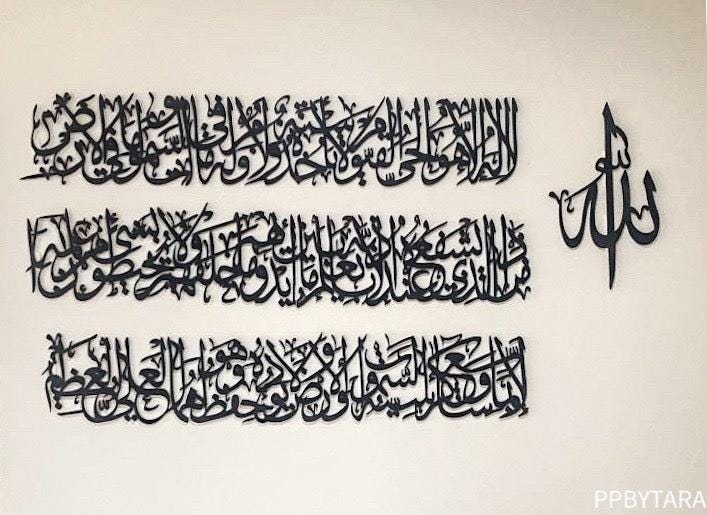 الله
لا إله إلا هو الحي القيوم لا تأخذه سنة ولا نوم له ما في السموات وما في الأرض
من ذا الذي يشفع عنده إلا بإذنه يعلم ما بين أيديهم وما خلفهم ولا يحيطون بشيء من علمه
إلا بما شاء وسع كرسيه السموات والأرض ولا يؤده حفظهما وهو العلي العظيم
PPBYTARA